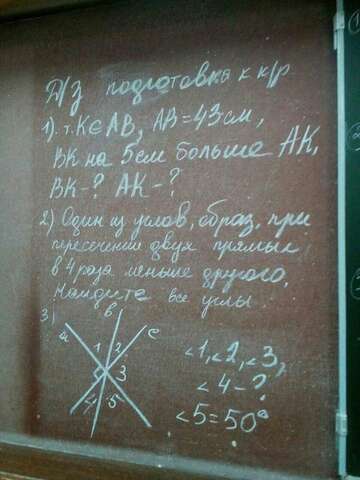 Д/з подготовка к к/р
1). т.К∈АВ, АВ=43см,
ВК на 5см больше АК,
ВК-? АК-?
2) Один из углов, образ. при
пересечении двух прямых
в 4 раза меньше другого.
Найдите все углы
3)
а
в
с
1 2
3
4 5
<1, <2, <3,
<4-?
<5=50°